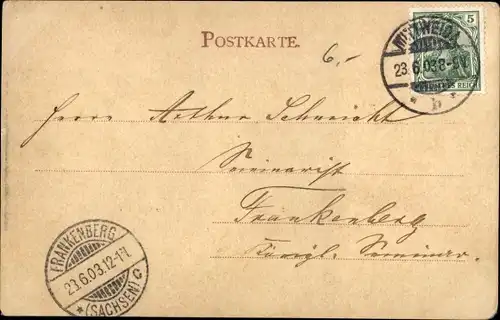 POSTKARTE.
6,-
5
MITTWEIDA
23.6.03 8-9V.
* b *
DEUTSCHES REICH
Herrn Arthur Schreicht
Seminarist
Frankenberg
Königl. Seminar.
FRANKENBERG
23.6.03.12-1N.
* (SACHSEN) C